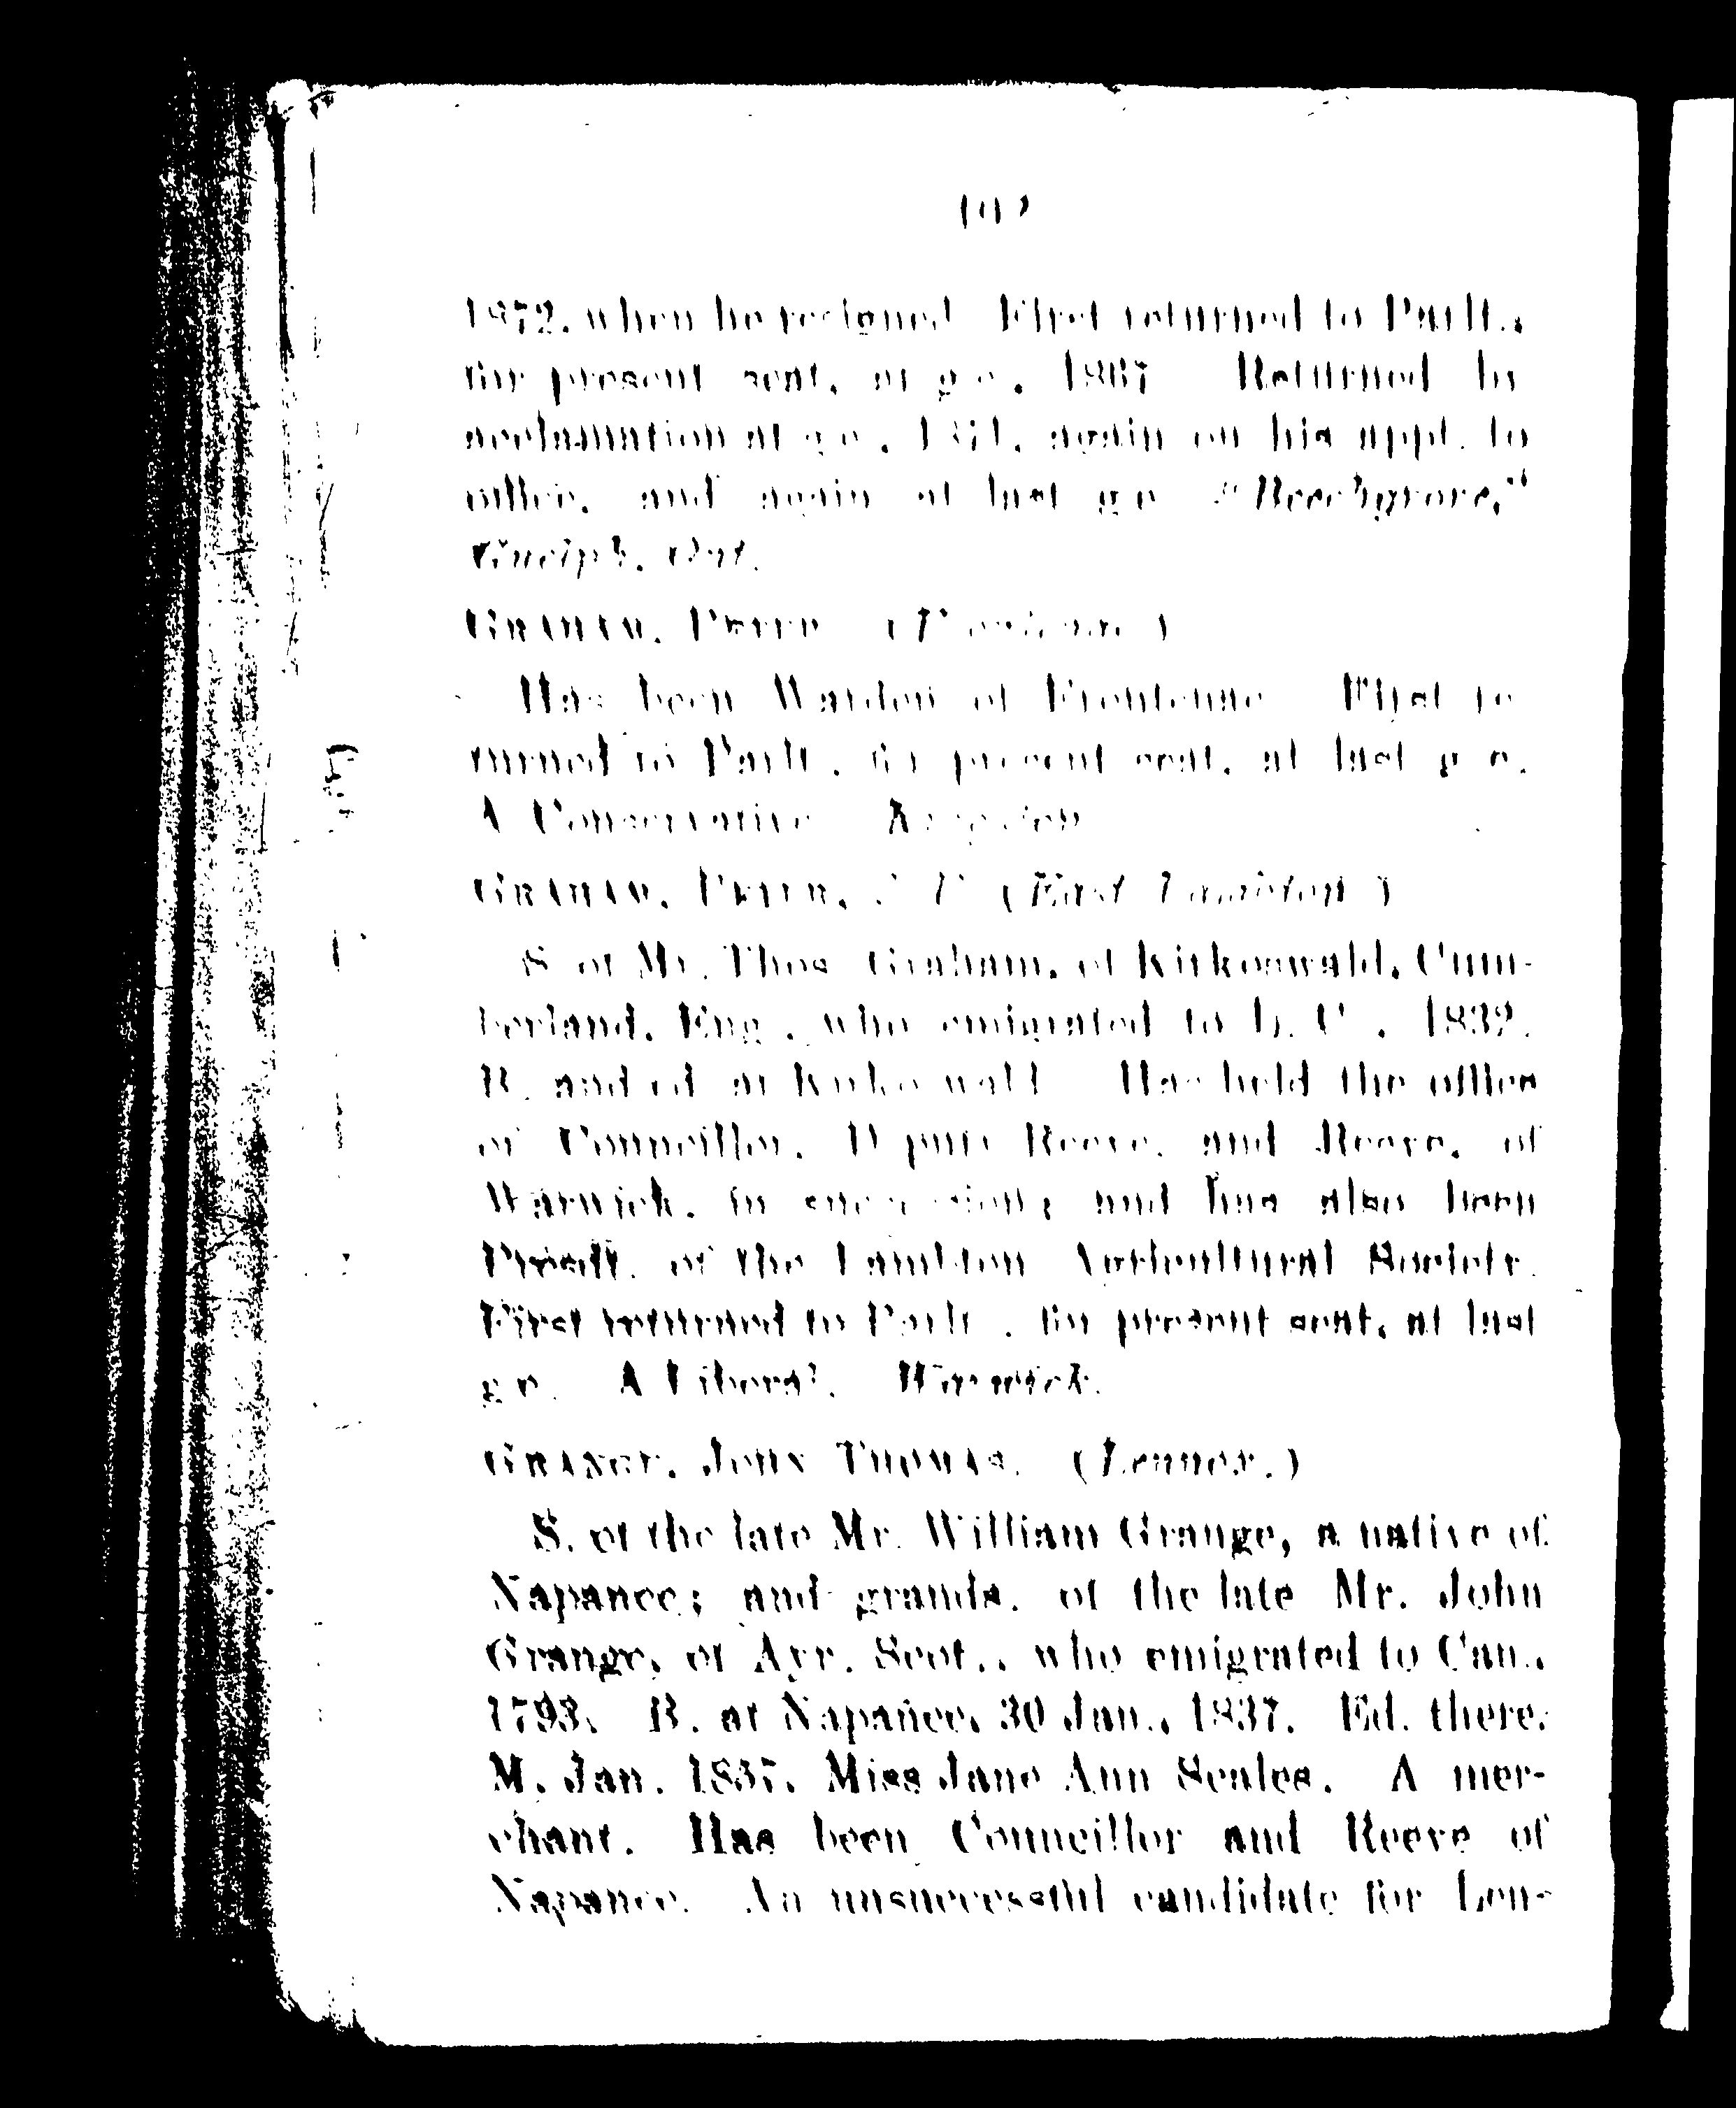 1872, when he resigned. First returned to Parlt.,
for present seat, at g.e., 1867. Returned by
acclamation at g.e., 1871, again on his appt. to
office, and again at last g.e. "Beechgrove,"
Guelph, Ont.
GRAHAM, PETER. (Frontenac.)
Has been Warden of Frontenac. First re-
turned to Parlt., for present seat, at last g.e.
A Conservative.
GRAHAM, PETER, (East Lambton.)
S. of Mr. Thos. Graham, of Kirkoswald, Cum-
berland, Eng., who emigrated to L. C., 1832.
B. and ed. at Kirkoswald. Has held the office
of Councillor, Deputy Reeve, and Reeve, of
Warwick, in succession; and has also been
Presdt. of the Lambton Agricultural Society.
First returned to Parlt., for present seat, at last
g.e. A Liberal. Warwick.
GRANGE, JOHN THOMAS. (Lennox.)
S. of the late Mr. William Grange, a native of
Napanee; and grands. of the late Mr. John
Grange, of Ayr, Scot., who emigrated to Can.,
1793. B. at Napanee, 30 Jan., 1837. Ed. there.
M. Jan. 1857, Miss Jane Ann Scales. A mer-
chant. Has been Councillor and Reeve of
Napanee. An unsuccessful candidate for Len-